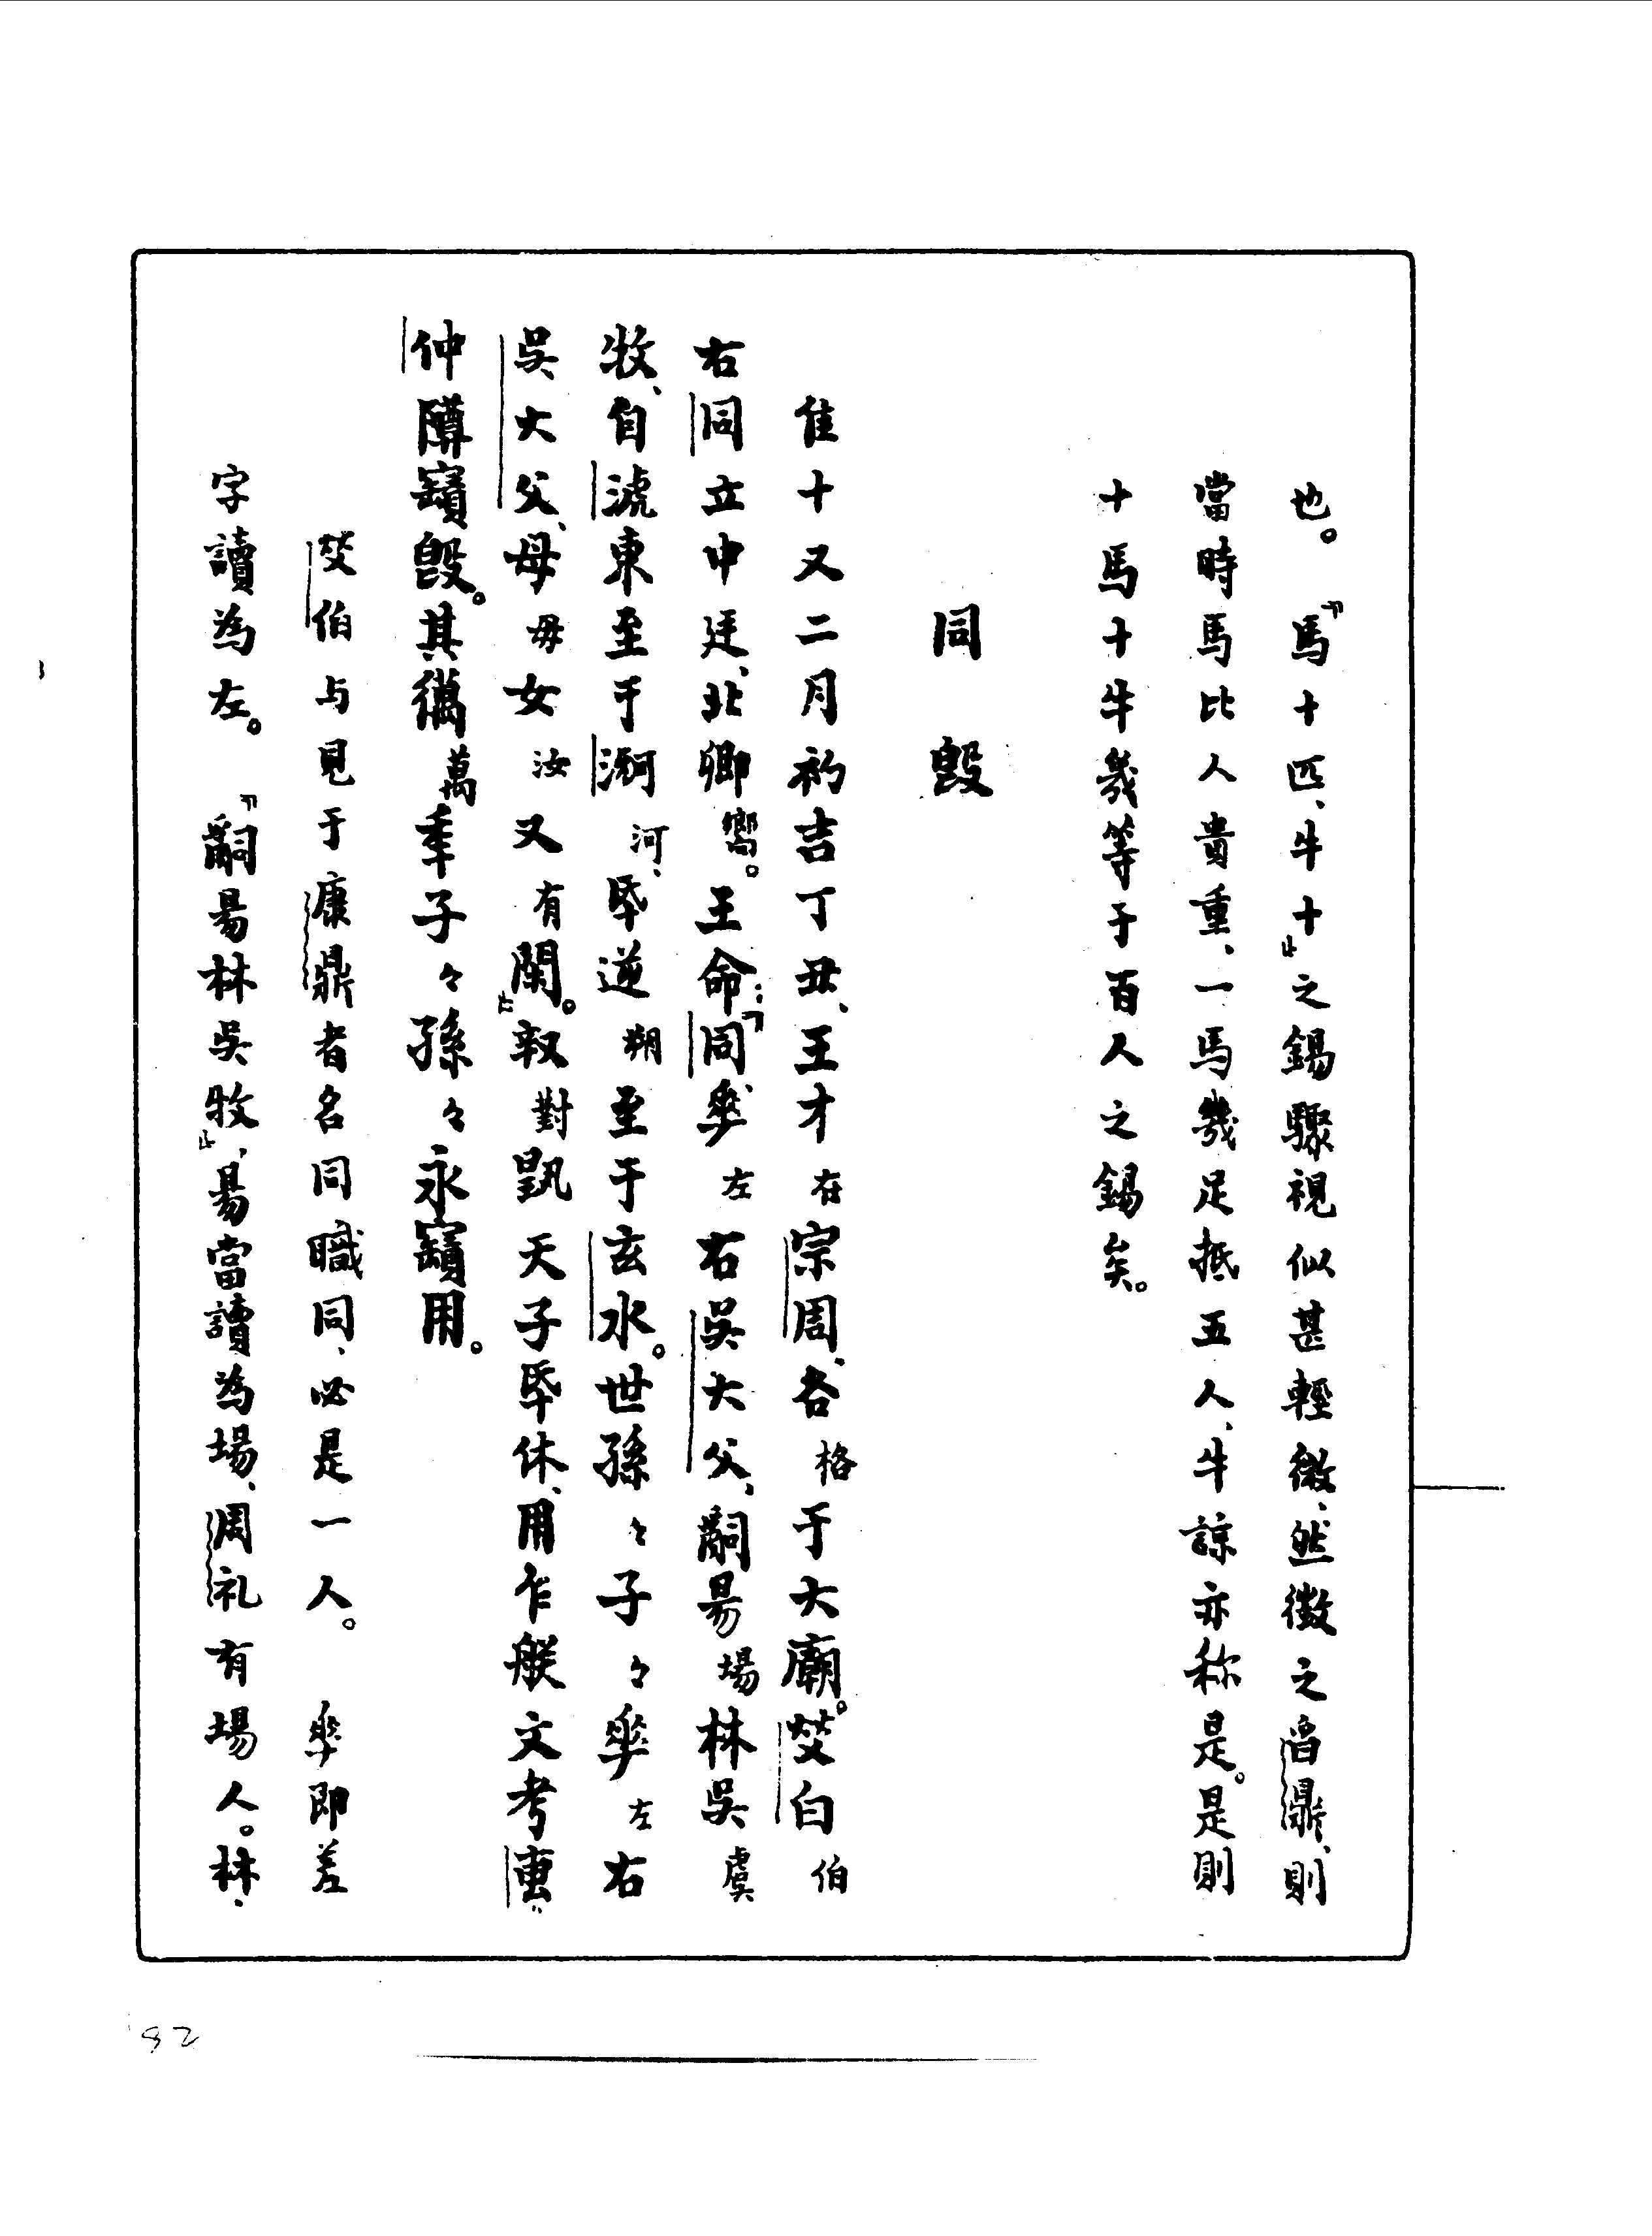 也。『馬十匹、牛十』之錫驟視似甚輕微、然徵之曶鼎、則
當時馬比人貴重、一馬幾足抵五人、牛諒亦称是。是則
十馬十牛幾等于百人之錫矣。
同𣪘
隹十又二月初吉丁丑、王才在宗周、各格于大廟。㷼白伯
右同立中廷、北卿嚮。王命:『同𢀩左右吳大父、𤔲昜場林吳虞
牧、自淲東至于𣶃河、氒逆朔至于玄水。世孫〻子〻𢀩左右
吳大父、母毋女汝又有閑。』𢾭對𩁹天子氒休、用乍朕文考叀
仲䵼寶𣪘。其萬萬年子〻孫〻永寶用。
㷼伯与見于康鼎者名同職同、必是一人。　𢀩即差
字讀為左。『𤔲昜林吳牧』、昜當讀為場、周礼有場人。林、
82